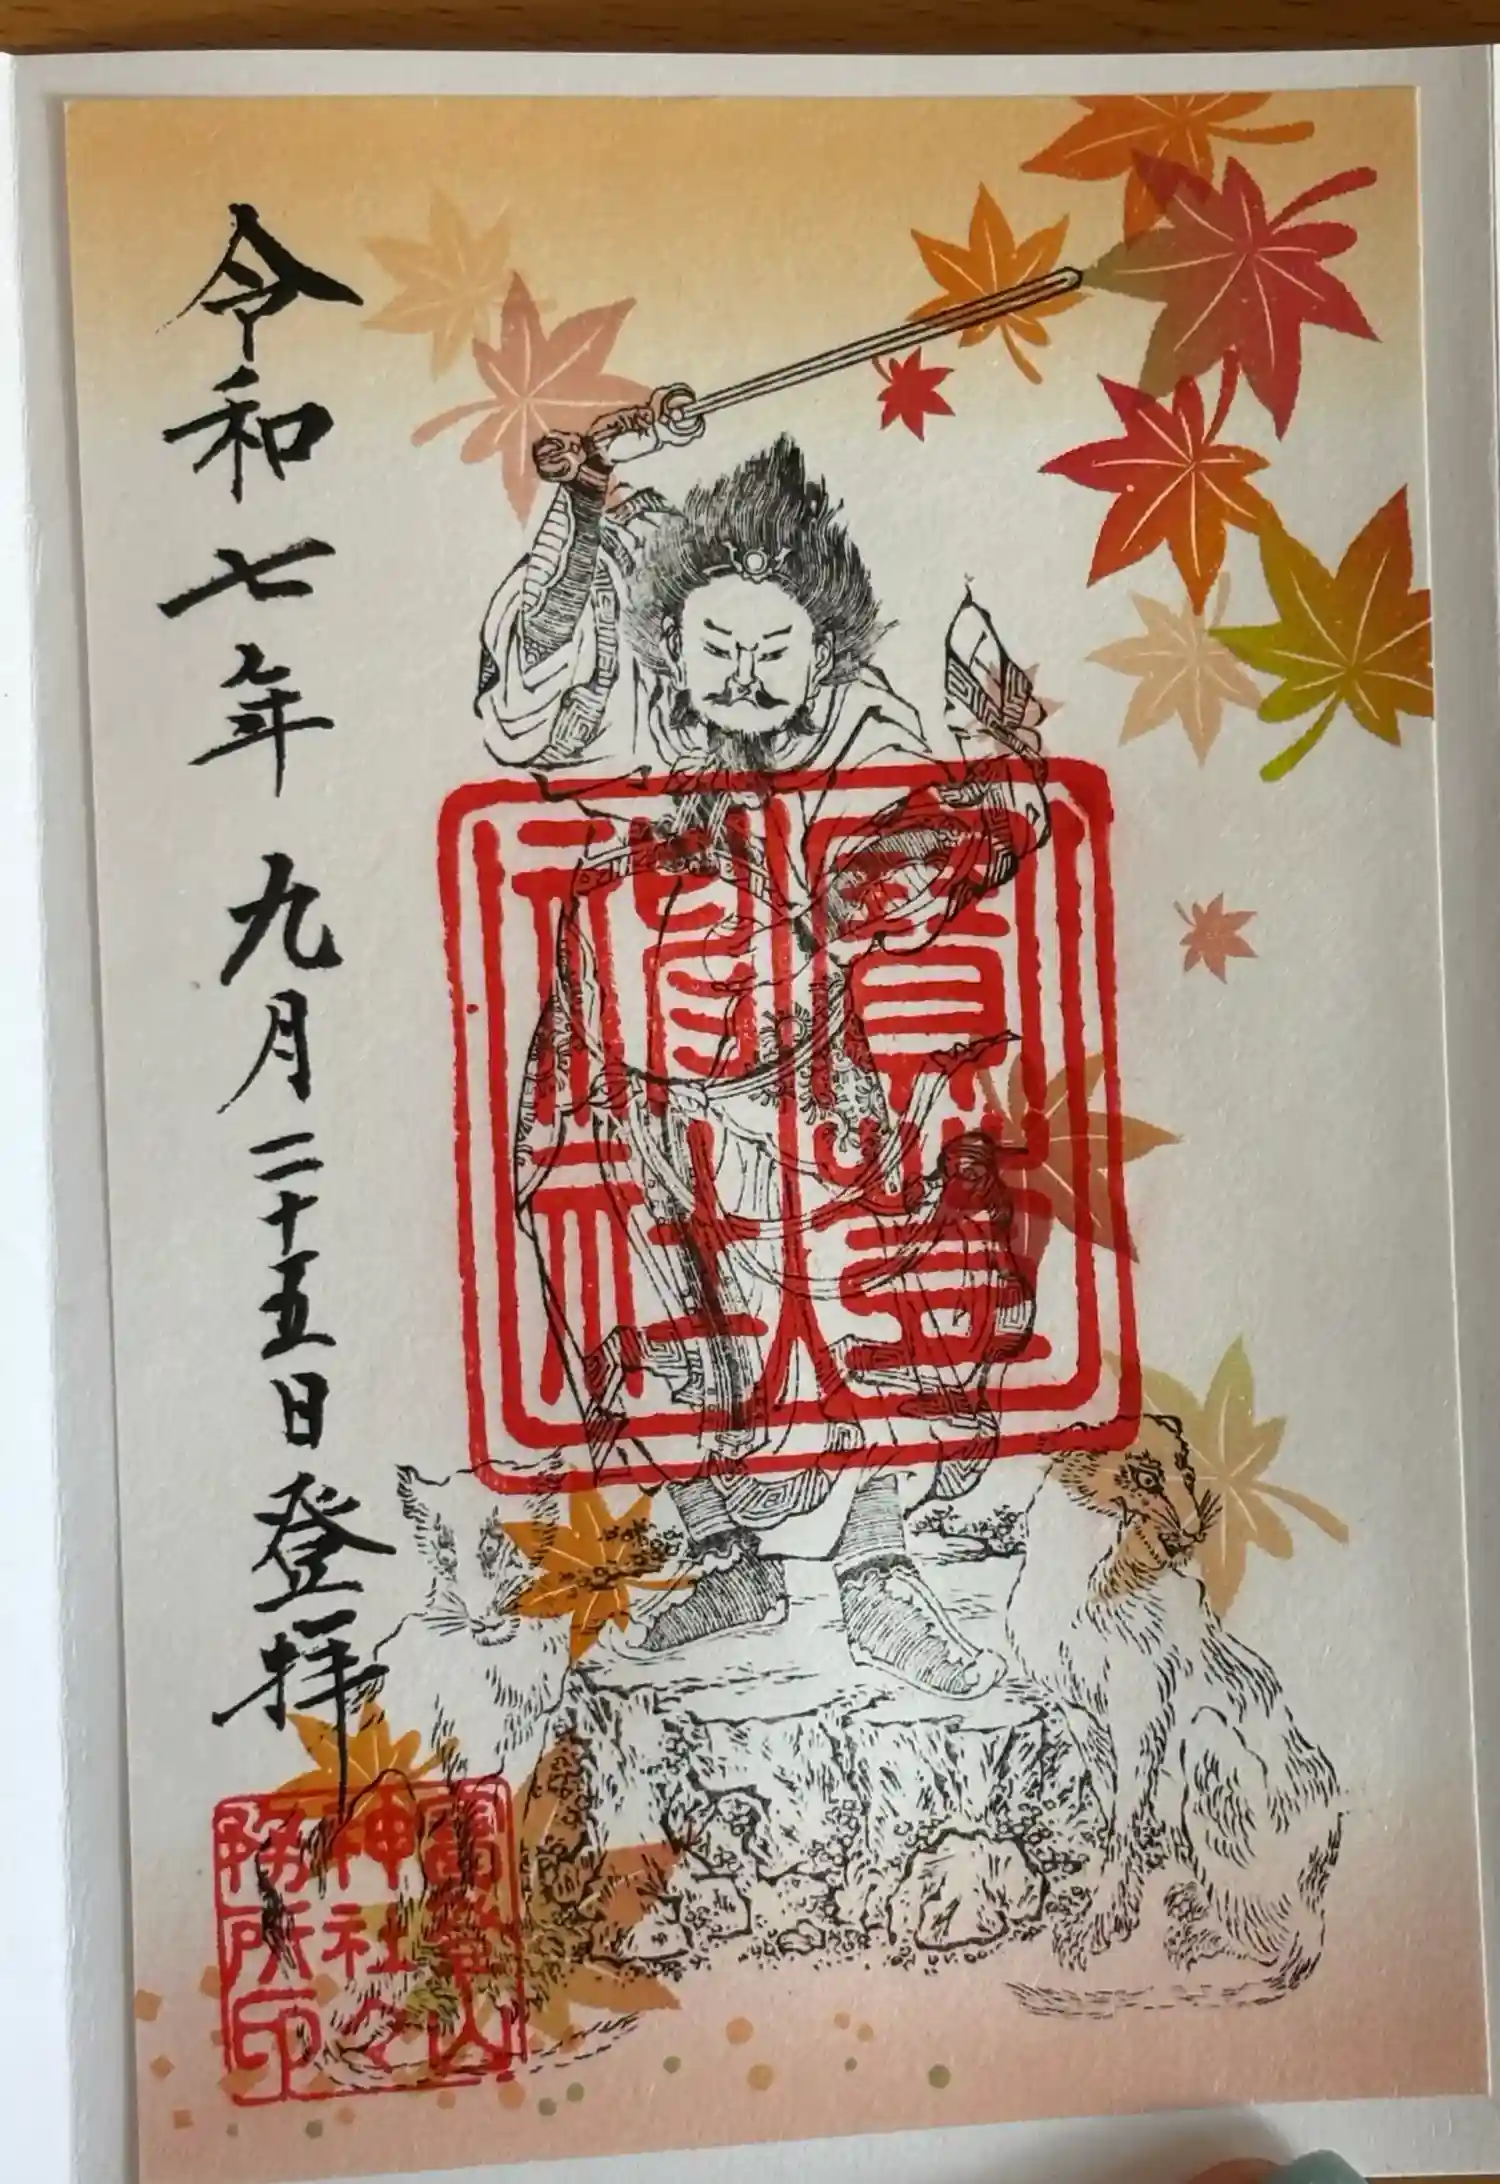 寶登
神社
令和七年九月二十五日登拜
寳登山
神社々
務所印